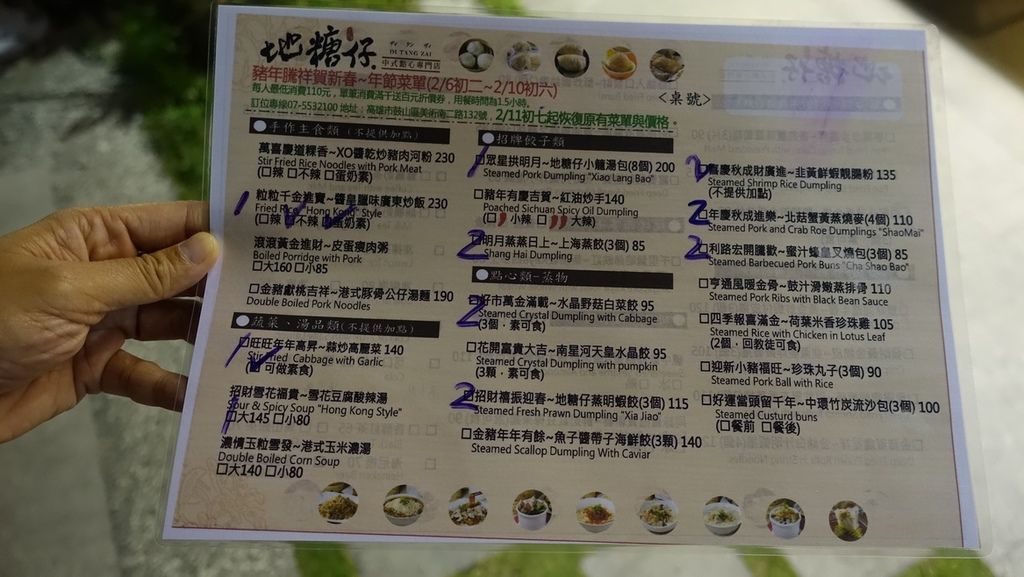 地糖仔
DI TANG ZAI
中式點心專門店
豬年騰祥賀新春~年節菜單(2/6初二~2/10初六)
<桌號>
每人最低消費110元，單筆消費滿千送百元折價券，用餐時間為1.5小時。
訂位專線07-5532100 地址：高雄市鼓山區美術南二路132號，2/11初七起恢復原有菜單與價格。
●手作主食類(不提供加點)
萬喜慶道粿香~XO醬乾炒豬肉河粉 230
Stir Fried Rice Noodles with Pork Meat
(□辣 □不辣 □蛋奶素)
1 粒粒千金進寶~醬皇臘味廣東炒飯 230
Fried Rice "Hong Kong" Style
(□辣 □不辣 □蛋奶素)
滾滾黃金進財~皮蛋瘦肉粥
Boiled Porridge with Pork
□大160 □小85
□金豬獻桃吉祥~港式豚骨公仔湯麵 190
Double Boiled Pork Noodles
●蔬菜、湯品類(不提供加點)
1 □旺旺年年高昇~蒜炒高麗菜 140
Stir Fried Cabbage with Garlic
(□可做素食)
招財雪花福貴~雪花豆腐酸辣湯
Sour & Spicy Soup "Hong Kong Style"
1 □大145 □小80
濃情玉粒雪發~港式玉米濃湯
Double Boiled Corn Soup
□大140 □小80
●招牌餃子類
1 □眾星拱明月~地糖仔小籠湯包(8個) 200
Steamed Pork Dumpling "Xiao Lang Bao"
□豬年有慶吉賀~紅油炒手140
Poached Sichuan Spicy Oil Dumpling
(□小辣 □大辣)
2 □明月蒸蒸日上~上海蒸餃(3個) 85
Shang Hai Dumpling
●點心類-蒸物
2 □好市萬金滿載~水晶野菇白菜餃 95
Steamed Crystal Dumpling with Cabbage
(3個．素可食)
□花開富貴大吉~南星河天皇水晶餃 95
Steamed Crystal Dumpling with pumpkin
(3顆．素可食)
2 □招財禧振迎春~地糖仔蒸明蝦餃(3個) 115
Steamed Fresh Prawn Dumpling "Xia Jiao"
□金豬年年有餘~魚子醬帶子海鮮餃(3顆) 140
Steamed Scallop Dumpling With Caviar
2 □喜慶秋成財廣進~韭黃鮮蝦靚腸粉 135
Steamed Shrimp Rice Dumpling
(不提供加點)
2 □年慶秋成進樂~北菇蟹黃蒸燒麥(4個) 110
Steamed Pork and Crab Roe Dumplings "ShaoMai"
2 □利路宏開騰歡~蜜汁蠔皇叉燒包(3個) 85
Steamed Barbecued Pork Buns "Cha Shao Bao"
□亨通風暖金骨~鼓汁滑嫩蒸排骨 110
Steamed Pork Ribs with Black Bean Sauce
□四季報喜滿金~荷葉米香珍珠雞 105
Steamed Rice with Chicken in Lotus Leaf
(2個．回教徒可食)
□迎新小豬福旺~珍珠丸子(3個) 90
Steamed Pork Ball with Rice
□好運當頭留千年~中環竹炭流沙包(3個) 100
Steamed Custurd buns
(□餐前 □餐後)